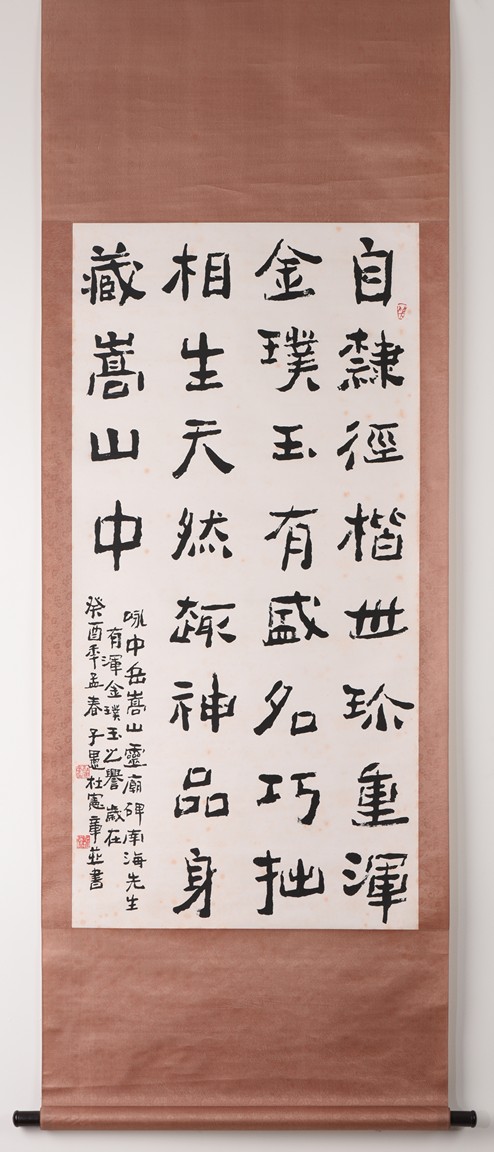 自隸徑楷世珎重渾
金璞玉有盛名巧拙
相生天然趣神品身
藏嵩山中
咏中岳嵩山靈廟碑南海先生
有渾金璞玉之譽歲在
癸酉年孟春子墨杜憲章並書